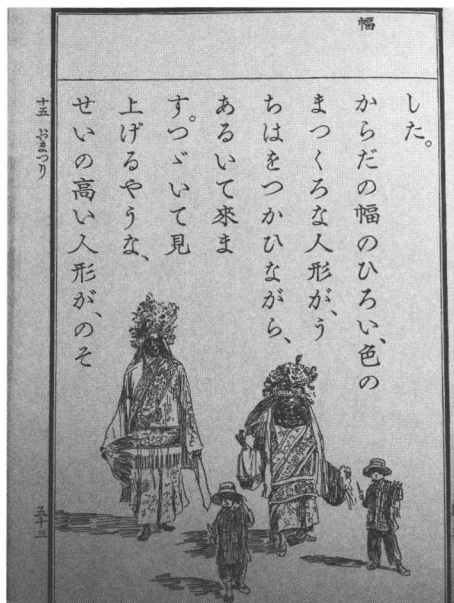 幅
した。
からだの幅のひろい、色の
まつくろな人形が、う
ちはをつかひながら、
あるいて來ま
す。つゞいて見
上げるやうな、
せいの高い人形が、のそ
十五 おまつり
五十三